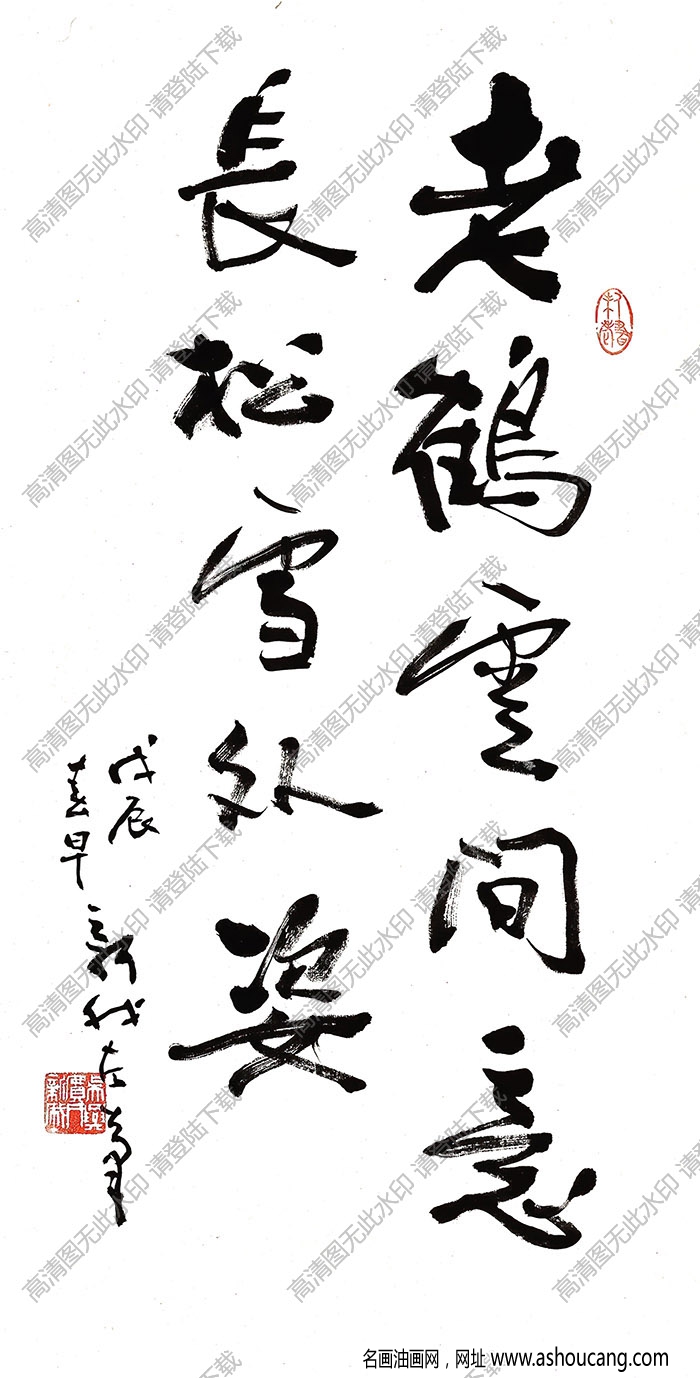 老鶴雲间意
長松雪外姿
戊辰
春早 新我左筆
高清图无此水印 请登陆下载
名画油画网，网址 www.ashoucang.com